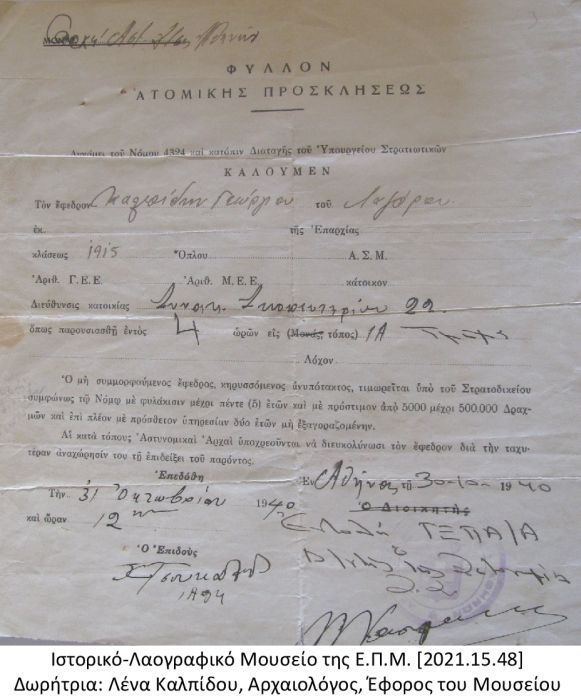 ΦΥΛΛΟΝ
ΑΤΟΜΙΚΗΣ ΠΡΟΣΚΛΗΣΕΩΣ
Δυνάμει τοῦ Νόμου 4394 καὶ κατόπιν Διαταγῆς τοῦ Ὑπουργείου Στρατιωτικῶν
ΚΑΛΟΥΜΕΝ
Τὸν ἔφεδρον Καλπίδην Γεώργιον τοῦ Λαζάρου
ἐκ τῆς Ἐπαρχίας
κλάσεως 1915 Ὅπλου Α.Σ.Μ.
Ἀριθ. Γ.Ε.Ε. Ἀριθ. Μ.Ε.Ε. κάτοικον
Διεύθυνσις κατοικίας 22
ὅπως παρουσιασθῇ ἐντὸς 4 ὡρῶν εἰς (Μονάς, τόπος) 1Α Τμῆμα
Λόχον
Ὁ μὴ συμμορφούμενος ἔφεδρος, κηρυσσόμενος ἀνυπότακτος, τιμωρεῖται ὑπὸ τοῦ Στρατοδικείου
συμφώνως τῷ Νόμῳ μὲ φυλάκισιν μέχρι πέντε (5) ἐτῶν καὶ μὲ πρόστιμον ἀπὸ 5000 μέχρι 500.000 Δραχ-
μῶν καὶ ἐπὶ πλέον μὲ πρόσθετον ὑπηρεσίαν δύο ἐτῶν μὴ ἐξαγοραζομένην.
Αἱ κατὰ τόπους Ἀστυνομικαὶ Ἀρχαὶ ὑποχρεοῦνται νὰ διευκολύνωσι τὸν ἔφεδρον διὰ τὴν ταχυ-
τέραν ἀναχώρησίν του τῇ ἐπιδείξει τοῦ παρόντος.
Ἐπεδόθη
Ἐν Ἀθήναις τῇ 30-10- 1940
Τὴν 31 Ὀκτωβρίου 1940
Ὁ Διοικητὴς
καὶ ὥραν 12
Ὁ Ἐπιδοὺς
Ιστορικό-Λαογραφικό Μουσείο της Ε.Π.Μ. [2021.15.48]
Δωρήτρια: Λένα Καλπίδου, Αρχαιολόγος, Έφορος του Μουσείου